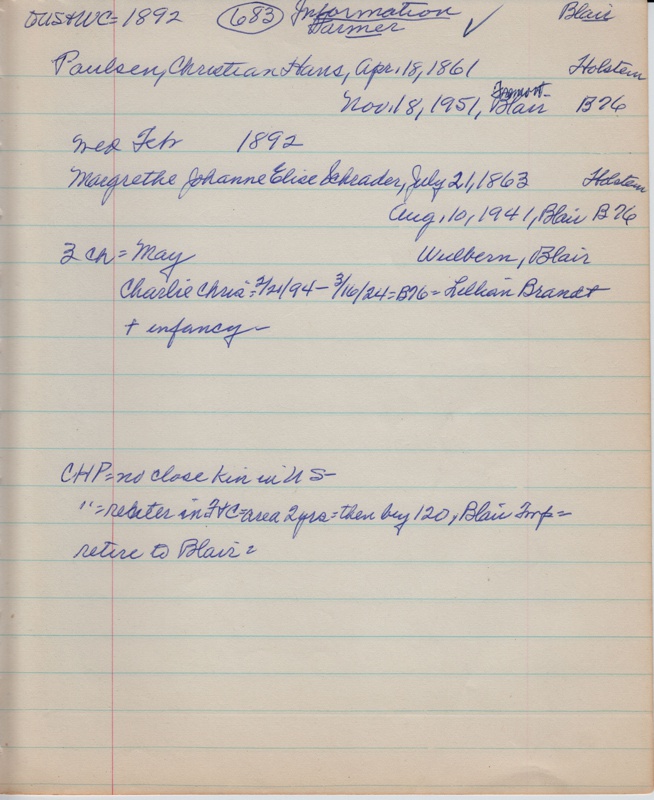 toUS+WC=1892 683 Information Blair
Farmer ✓
Paulsen, Christian Hans, Apr. 18, 1861 Holstein
Fremont
Nov. 18, 1951, Blair B76
wed Feb 1892
Margrethe Johanne Elise Schrader, July 21, 1863 Holstein
Aug. 10, 1941, Blair B76
3 ch = May Wulbern, Blair
Charlie Chris = /21/94 - 3/16/24 = B76 = Lillian Brandt
+ infancy -
CHP = no close kin in US -
" = renter in FtC = area 2 yrs = then buy 120, Blair Twp =
retire to Blair =